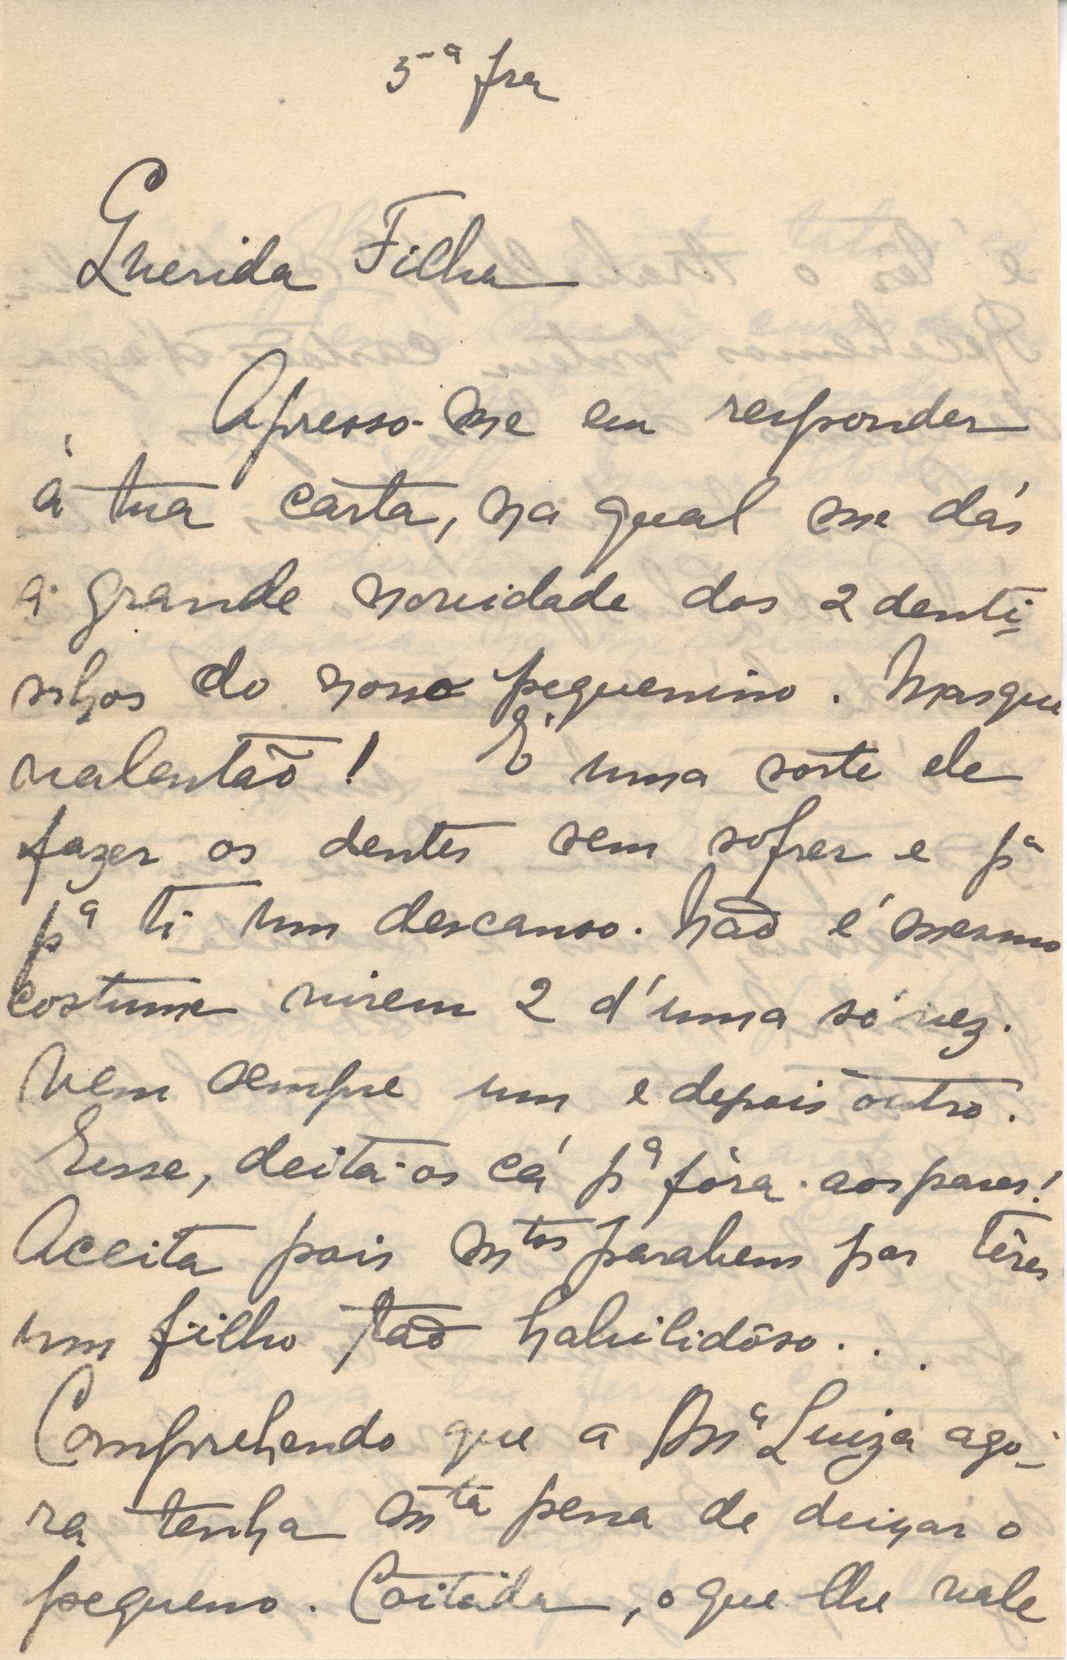 5-ª fra
Querida Filha
Apresso-me em responder
á tua carta, na qual me dás
a grande novidade dos 2 denti-
nhos do nosso pequenino. Mas que
valentão! É uma sorte ele
fazer os dentes sem sofrer e pª
pª ti um descanso. Não é mesmo
costume virem 2 d'uma só vez.
Vem sempre um e depois outro.
Esse, deita-os cá pª fóra aos pares!
Aceita pois mtos parabens por têres
um filho tão habilidôso...
Comprehendo que a Mª Luiza ago-
ra tenha mta pena de deixar o
pequeno. Coitada, o que lhe vale